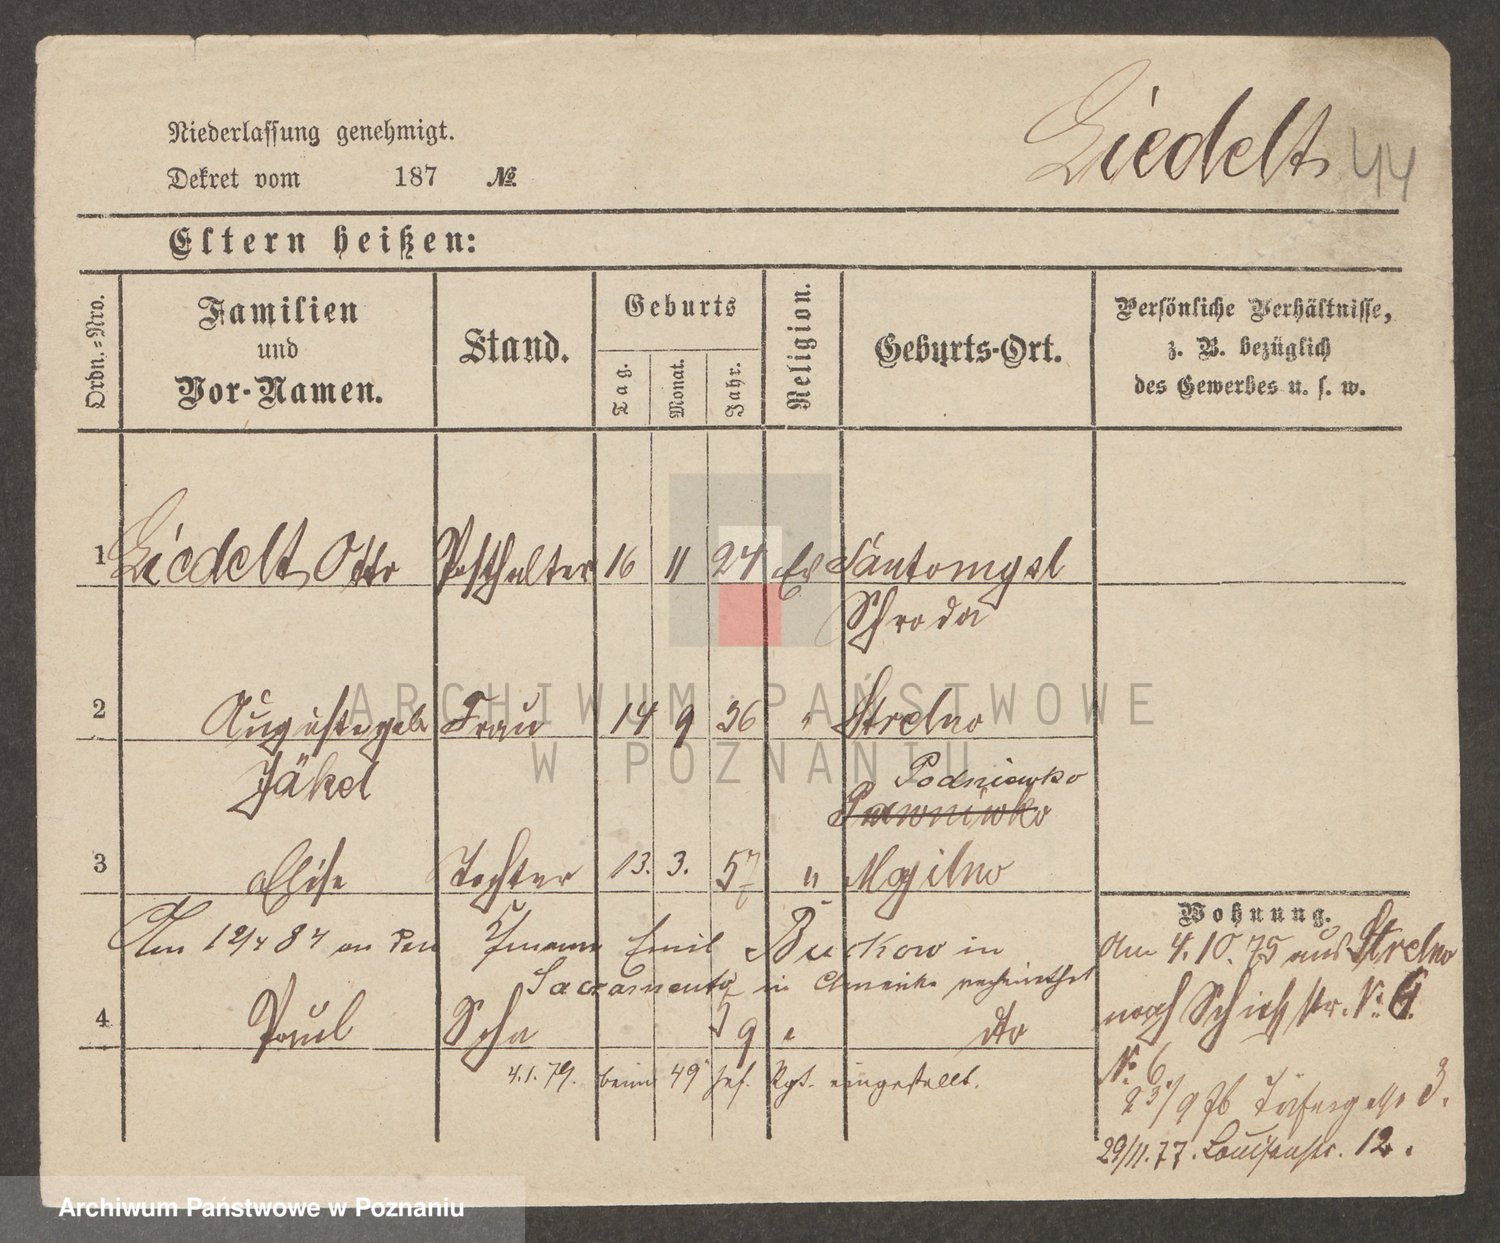 Liedelt 44
Niederlassung genehmigt.
Dekret vom 187 №
Eltern heißen:
Ordn.-Nro.
Familien
und
Vor-Namen.
Stand.
Geburts
Tag.
Monat.
Jahr.
Religion.
Geburts-Ort.
Persönliche Verhältnisse,
z. B. bezüglich
des Gewerbes u. s. w.
1 Liedelt Otto Posthalter 16 11 24 Ev Santomysl
Schroda
2 Auguste geb Frau 14 9 36 " Strelno
Jäkel
Podniewko
3 Elise Tochter 13. 3. 57 " Mogilno
Am 12/4 84 an den Emil Buckow in
Sacramento in Amerika verheirathet
4 Paul Sohn 59 " dto
4.1.79. beim 49 Inf. Rgt. eingestellt.
Wohnung.
Am 4.10.75 aus Strelno
nach Schießstr. No 6.
No 6.
23/9 76 3.
29/11.77. Louisenstr. 12.
ARCHIWUM PAŃSTWOWE
W POZNANIU
Archiwum Państwowe w Poznaniu